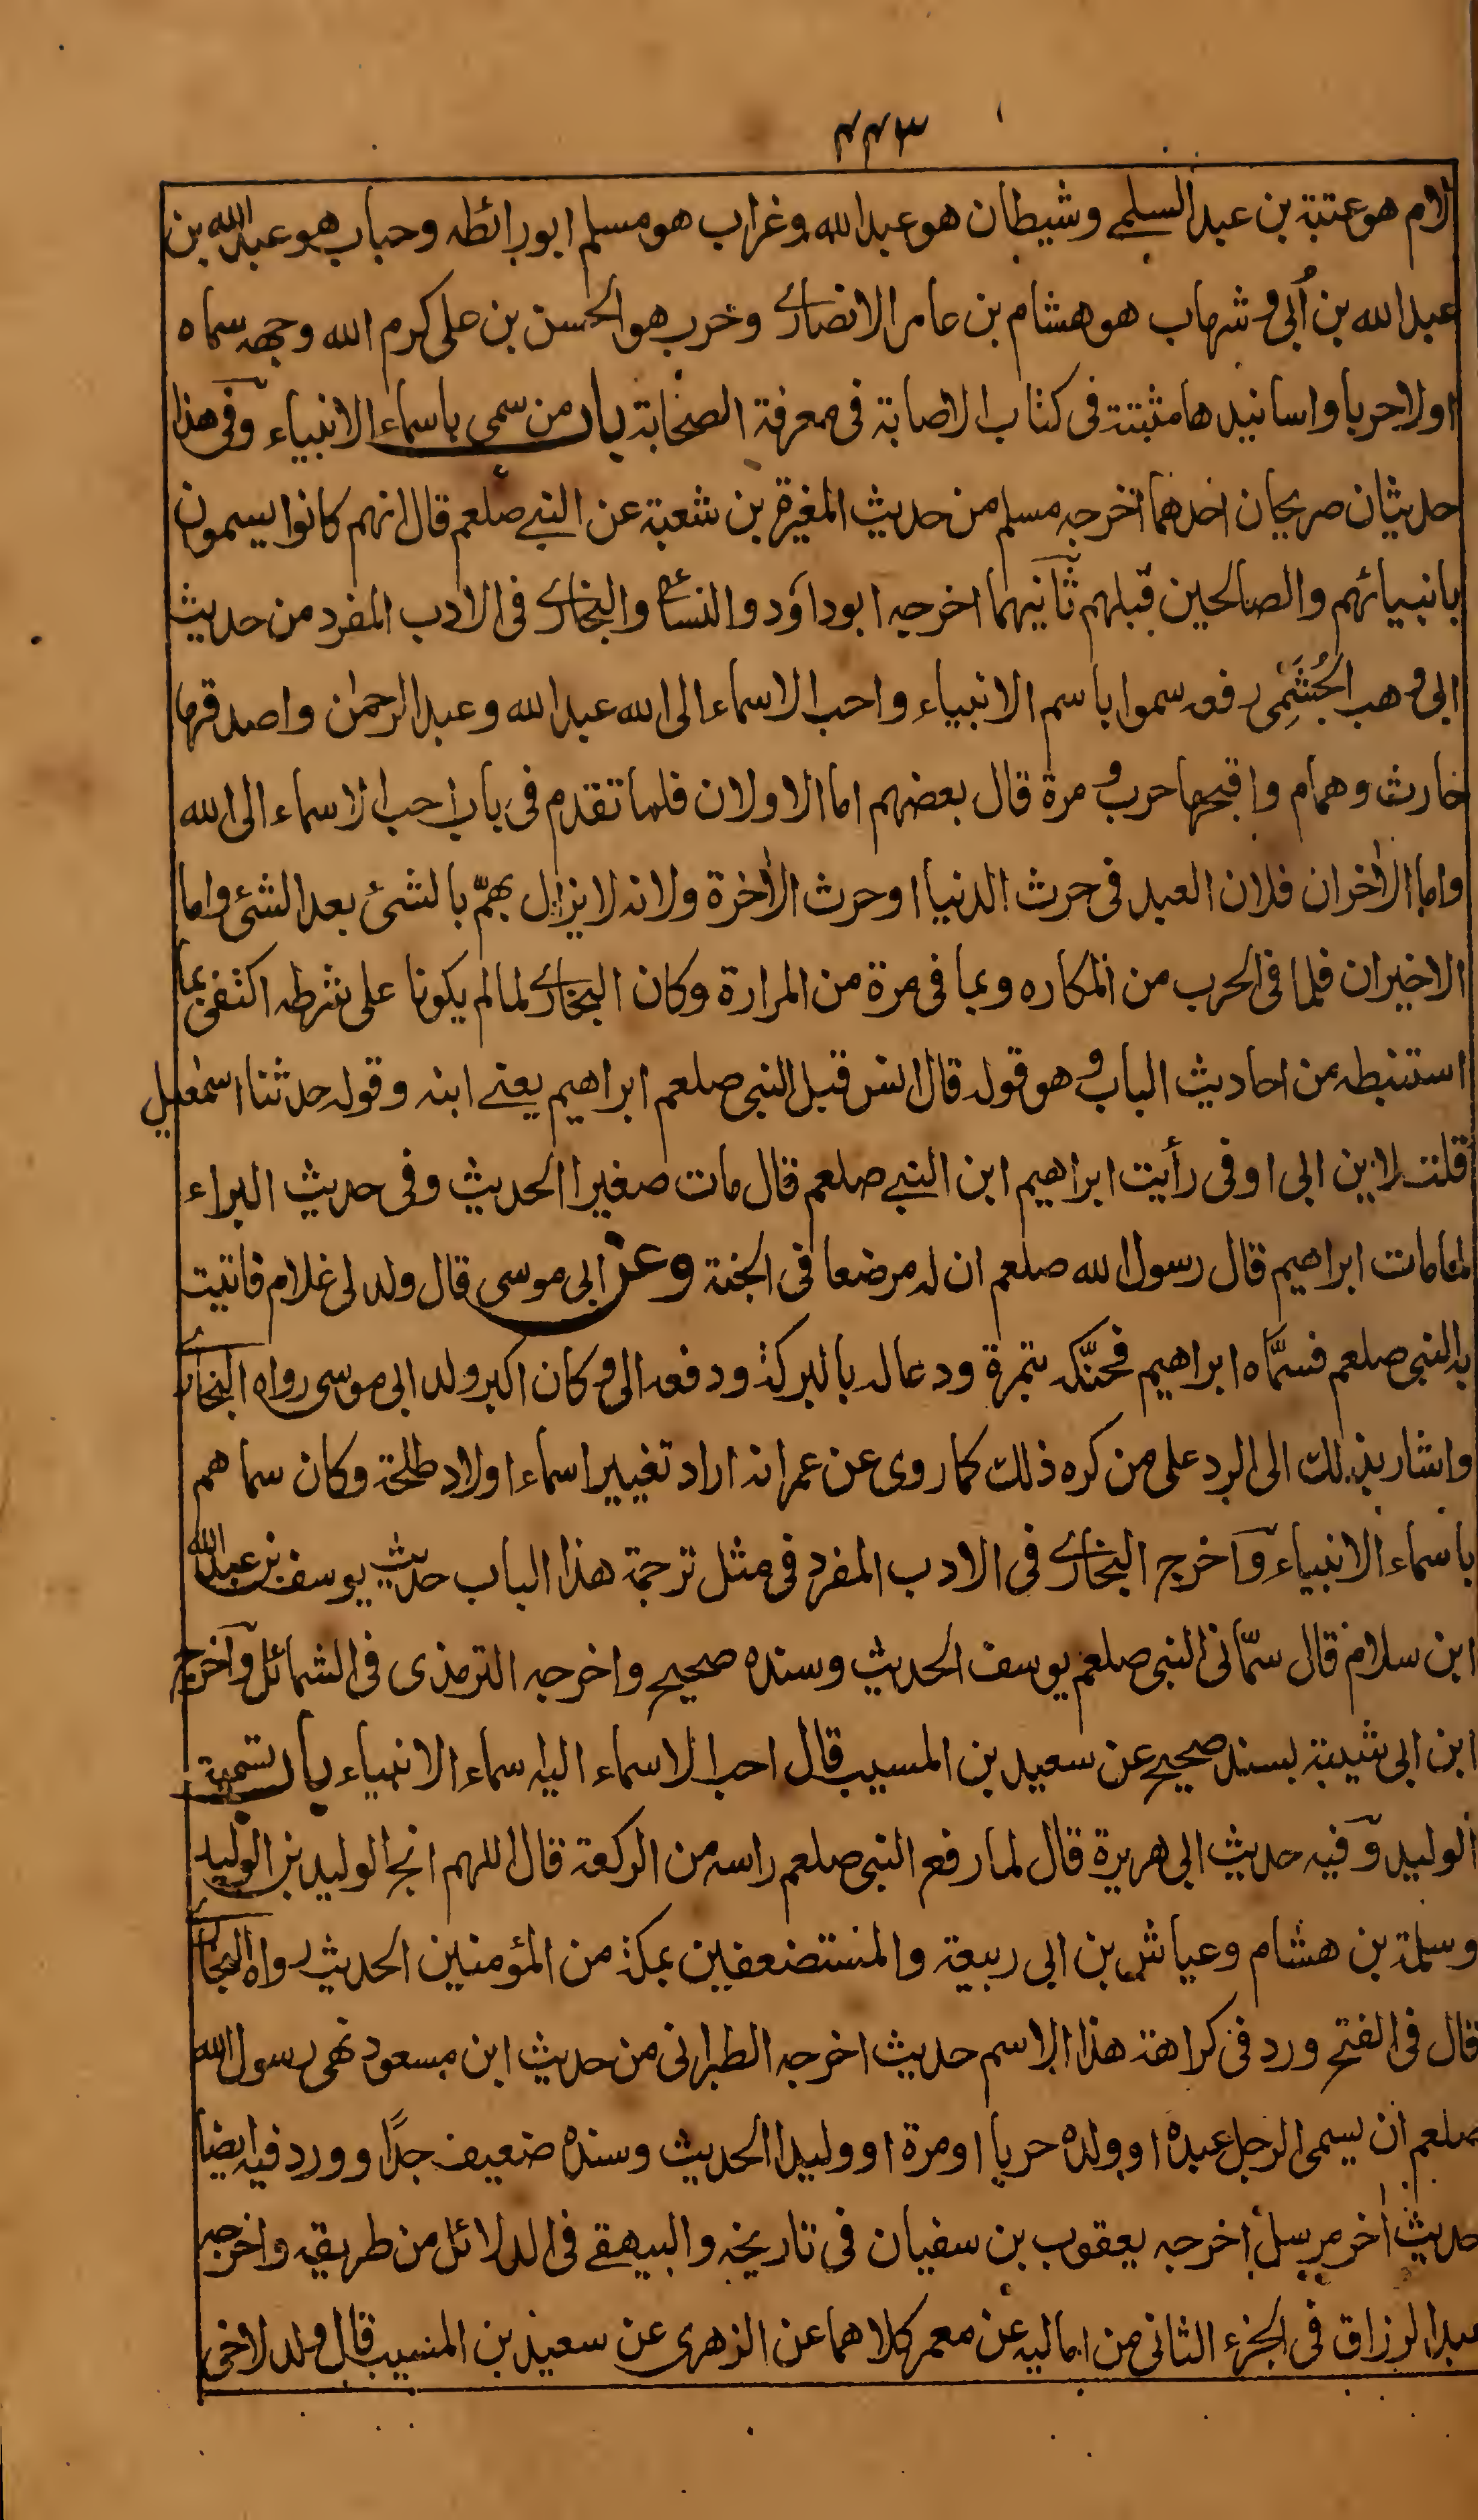 ٤٤٣
لام هو عتبة بن عبد السلمي وشيطان هو عبد الله وغراب هو مسلم ابو رائطه وحباب هو عبد الله بن
عبد الله بن أبي وشهاب هو هشام بن عامر الانصاري وخرب هو الحسن بن على كرم الله وجهه سماه
اولا حربا واسانيدها مثبتة فى كتاب الاصابة فى معرفة الصحابة باب من سمى باسماء الانبياء وفى هذا
حديثان صريحان احدهما اخرجه مسلم من حديث المغيرة بن شعبة عن النبي صلعم قال انهم كانوا يسمون
بانبيائهم والصالحين قبلهم ثانيهما اخرجه ابو داود والنسائي والبخاري فى الادب المفرد من حديث
ابى وهب الجُشَمِى رفعه سموا باسم الانبياء واحب الاسماء الى الله عبد الله وعبد الرحمٰن واصدقها
حارث وهمام واقبحها حرب ومرة قال بعضهم اما الاولان فلما تقدم فى باب احب الاسماء الى الله
واما الآخران فلان العبد فى حرث الدنيا او حرث الآخرة ولانه لا يزال يهمّ بالشئ بعد الشئ واما
الاخيران فلما فى الحرب من المكاره وبما فى مرة من المرارة وكان البخاري لما لم يكونا على شرطه اكتفى بما
استنبطه من احاديث الباب وهو قوله قال انس قبل النبى صلعم ابراهيم يعني ابنه وقوله حدثنا اسمٰعيل
قلت لابن ابى اوفى رأيت ابراهيم ابن النبي صلعم قال مات صغيرا الحديث وفى حديث البراء
لما مات ابراهيم قال رسول الله صلعم ان له مرضعا فى الجنة وعن ابى موسى قال ولد لى غلام فاتيت
به النبى صلعم فسمَّاه ابراهيم فحنَّكه بتمرة ودعا له بالبركة ودفعه الى وكان اكبر ولد ابى موسى رواه البخاري
واشار بذلك الى الرد على من كره ذلك كما روى عن عمر انه اراد تغيير اسماء اولاد طلحة وكان سماهم
باسماء الانبياء وآخرج البخاري فى الادب المفرد فى مثل ترجمة هذا الباب حديث يوسف بن عبد الله
ابن سلام قال سمّانى النبى صلعم يوسف الحديث وسنده صحيح واخرجه الترمذى فى الشمائل وآخرج
ابن ابى شيبة بسند صحيح عن سعيد بن المسيب قال احب الاسماء اليه اسماء الانبياء باب تسمية
الوليد وفيه حديث ابى هريرة قال لما رفع النبى صلعم راسه من الركعة قال اللهم انج الوليد بن الوليد
وسلمة بن هشام وعياش بن ابى ربيعة والمستضعفين بمكة من المؤمنين الحديث رواه البخاري
قال فى الفتح ورد فى كراهة هذا الاسم حديث اخرجه الطبرانى من حديث ابن مسعود نهى رسول الله
صلعم ان يسمى الرجل عبده او ولده حربا او مرة او وليدا الحديث وسنده ضعيف جدًا وورد فيه ايضا
حديث آخر مرسل اخرجه يعقوب بن سفيان فى تاريخه والبيهقي فى الدلائل من طريقه واخرجه
عبد الرزاق فى الجزء الثانى من اماليه عن معمر كلاهما عن الزهرى عن سعيد بن المسيب قال ولد لاخى